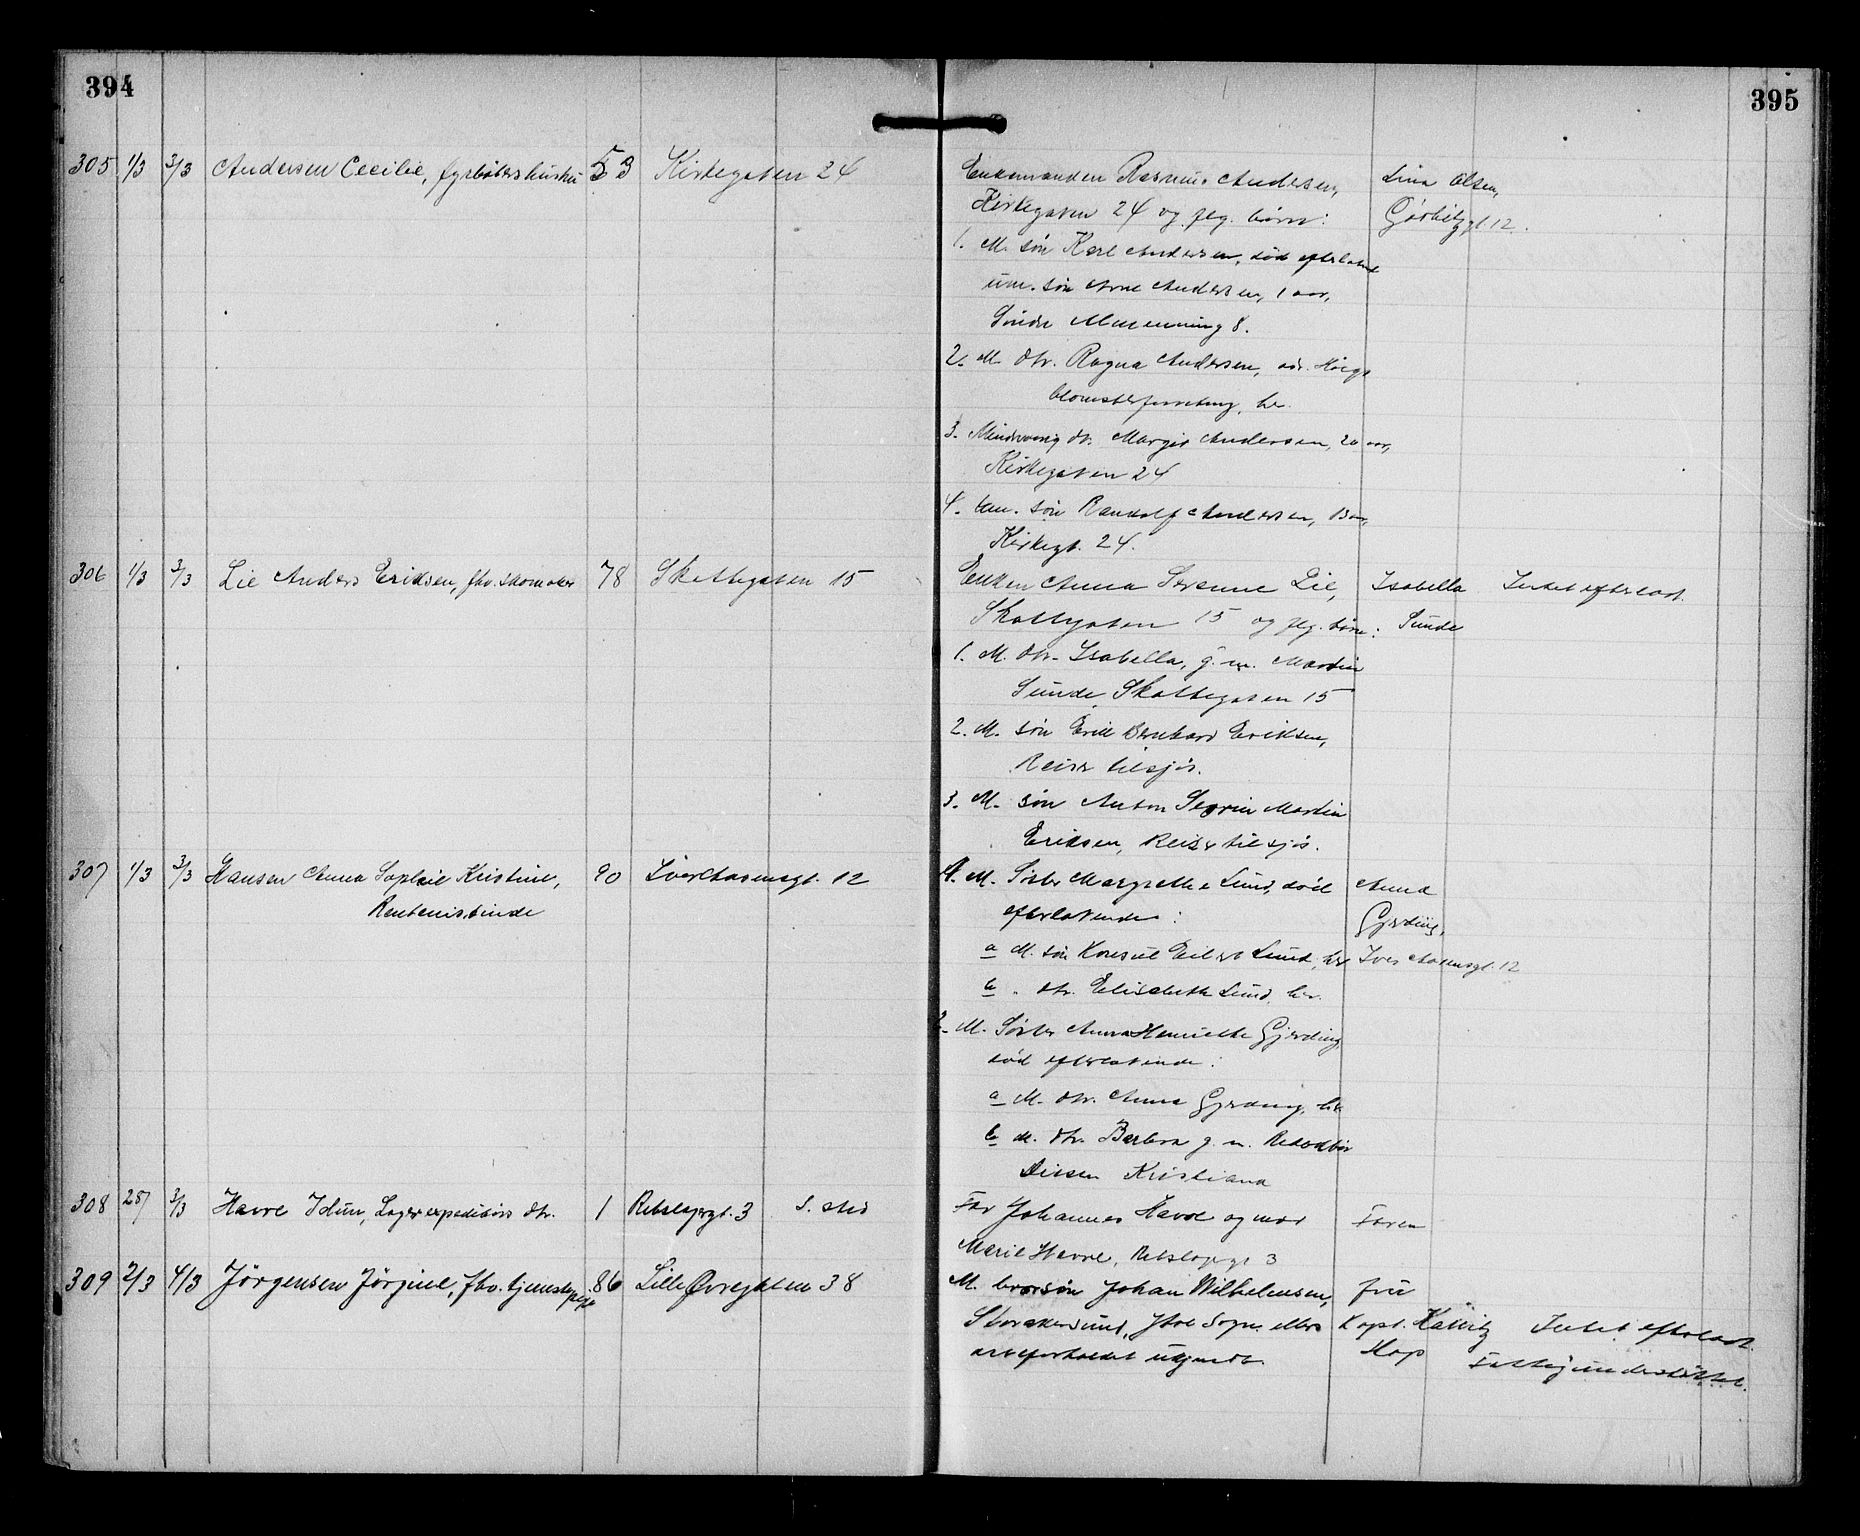 394
395
305 1/3 3/3 Andersen Cecilie, fyrbøters hustru 53 Kirkegaten 24
Enkemanden Rasmus Andersen,
Kirkegaten 24 og flg. børn:
1. M. søn Karl Andersen, død efterladt
um. søn Arne Andersen, 1 aar,
Søndre 8.
2. M. dtr. Ragna Andersen, adr. Høegs
blomsterforretning, her
3. Mindreaarig dtr. Margit Andersen, 20 aar,
Kirkegaten 24
4. um. søn Randolf Andersen, 13 aar,
Kirkegt. 24.
Lina Olsen,
gt. 12.
306 1/3 3/3 Lie Anders Eriksen, fhv. skomaker 78 Skottegaten 15
Enken Anna Serenne Lie,
Skottegaten 15 og flg. børn:
1. M. dtr. Isabella, g. m. Martin
Sunde, Skottegaten 15
2. M. søn Erik Bernhard Eriksen,
Reiser tilsjøs.
3. M. søn Anton Severin Martin
Eriksen, Reiser tilsjøs.
Isabella
Sunde
Intet efterlatt.
307 1/3 3/3 Hansen Anna Sophie Kristine,
Rentenistinde
90 Iver Aasensgt. 12
1. M. Søster Margrethe Lund, død
efterlatende:
a M. søn Konsul Eilert Lund, her
b " dtr. Elisabeth Lund, her.
2. M. Søster Anna Henriette Gjerding
død efterlatende:
a M. dtr. Anna Gjerding, her
b M. dtr. Barbra g. m. Redaktør
Kristiania
Anna
Gjerding,
Iver Aasensgt. 12
308 28/ 3/3 Havre Idun, Lagerexpeditørs dtr. 1 Rebslagergt. 3 S. sted
Far Johannes Havre og mor
Marie Havre, Rebslagergt 3
Faren
309 2/3 4/3 Jørgensen Jørgine, fhv. tjenestepige 86 Lille Øvregaten 38
M. brorsøn Johan Wilhelmsen,
Storakersund, Sogn. ellers
arveforholdet ukjendt.
fru
Kapt.
Hop
Intet efterlatt.
Fattigunderstøttet.